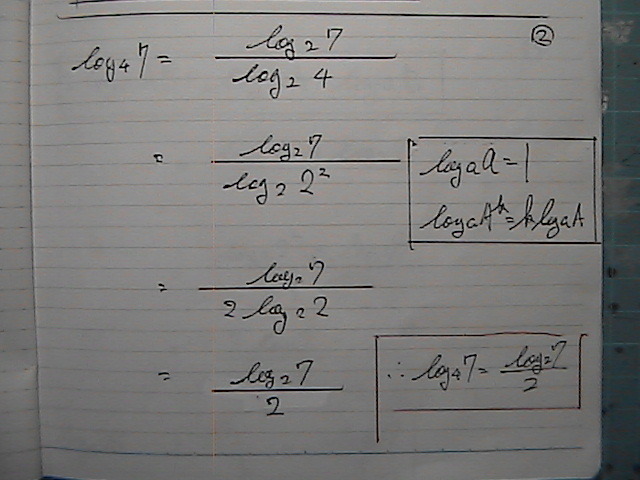 ②
log₄7 = log₂7 / log₂4
= log₂7 / log₂2²
logaA = 1
logaAᵏ = k logaA
= log₂7 / 2 log₂2
= log₂7 / 2
∴ log₄7 = log₂7 / 2